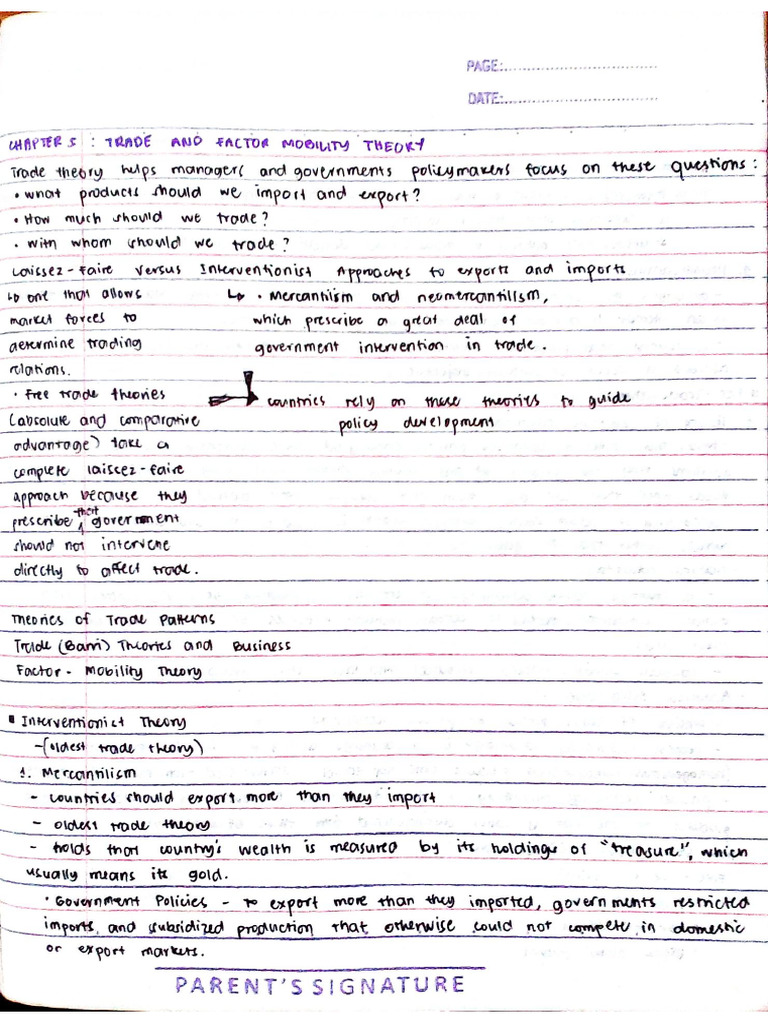 PAGE:................................
DATE:................................
CHAPTER 5 : TRADE AND FACTOR MOBILITY THEORY
Trade theory helps managers and governments policymakers focus on these questions:
• what products should we import and export?
• How much should we trade?
• with whom should we trade?
Laissez-faire versus Interventionist Approaches to exports and imports
↳ one that allows
market forces to
determine trading
relations.
• Free trade theories
(absolute and comparative
advantage) take a
complete laissez-faire
approach because they
prescribe that government
should not intervene
directly to affect trade.
↳ • Mercantilism and neomercantilism,
which prescribe a great deal of
government intervention in trade.
countries rely on these theories to guide
policy development
Theories of Trade Patterns
Trade (Barri) Theories and Business
Factor - Mobility Theory
▪ Interventionist Theory
-(oldest trade theory)
1. Mercantilism
- countries should export more than they import
- oldest trade theory
- holds that country's wealth is measured by its holdings of "treasure", which
usually means its gold.
• Government Policies - to export more than they imported, governments restricted
imports and subsidized production that otherwise could not compete in domestic
or export markets.
PARENT'S SIGNATURE